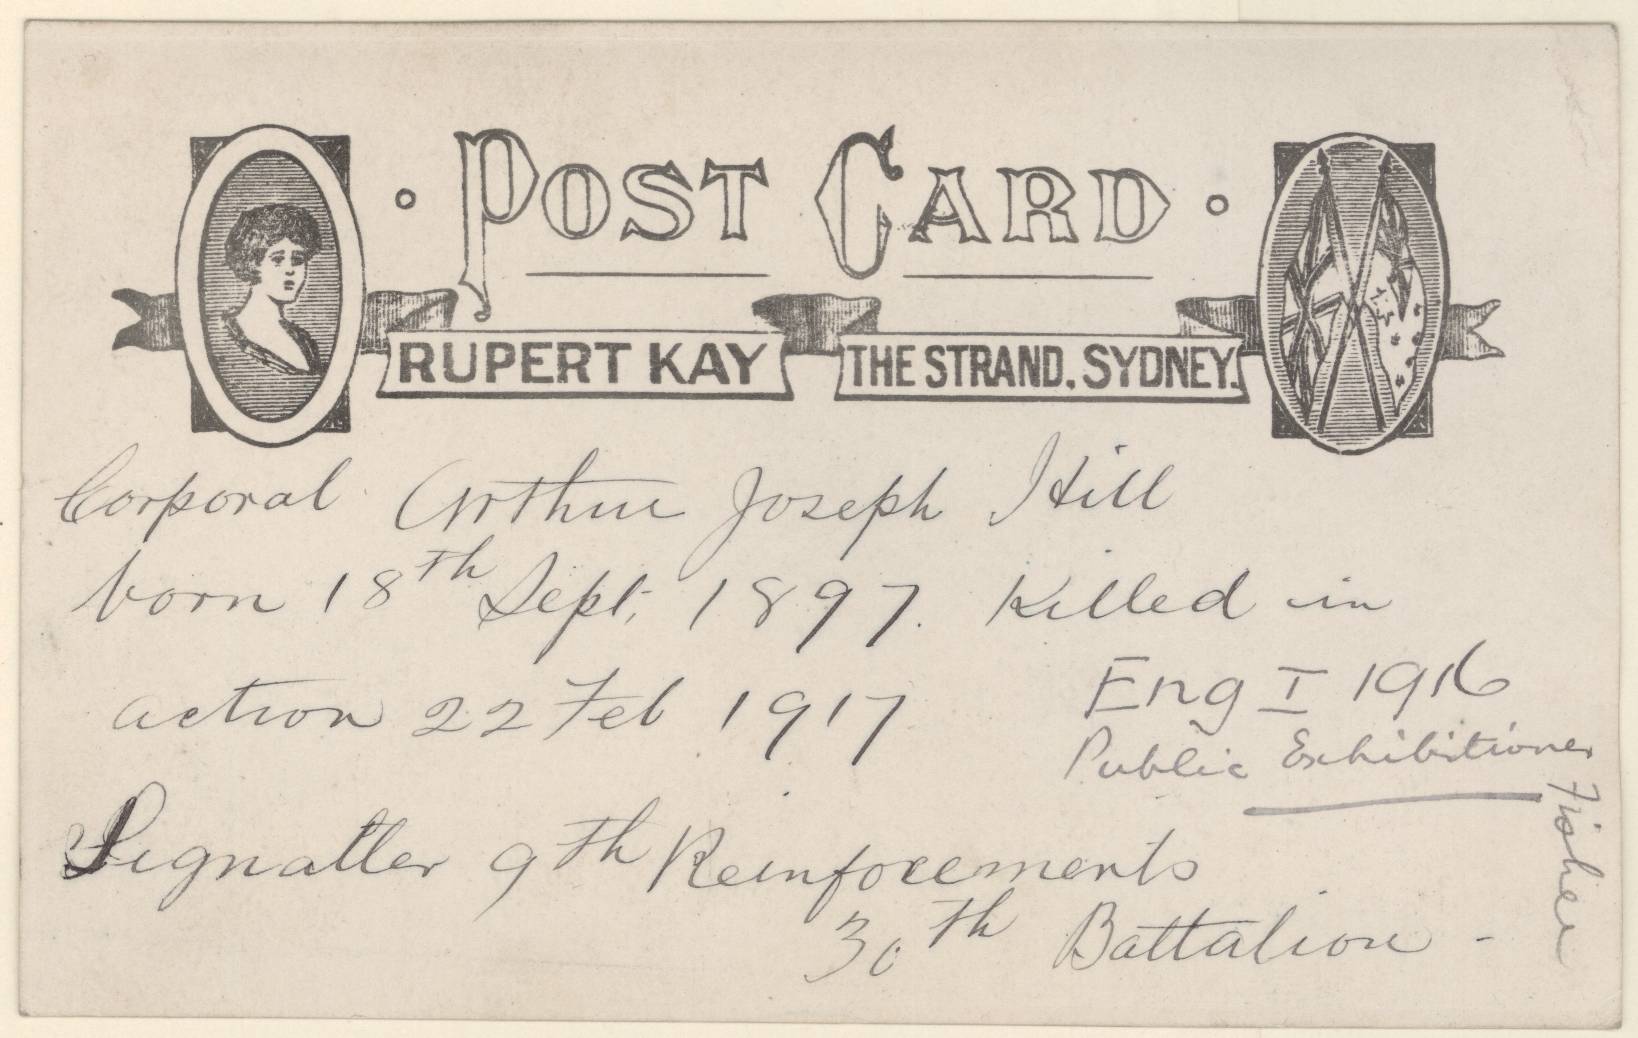 POST CARD
RUPERT KAY THE STRAND. SYDNEY.
Corporal Arthur Joseph Hill
born 18th Sept, 1897. Killed in
action 22 Feb 1917
Eng I 1916
Public Exhibitioner
Fisher
Signaller 9th Reinforcements
30th Battalion -